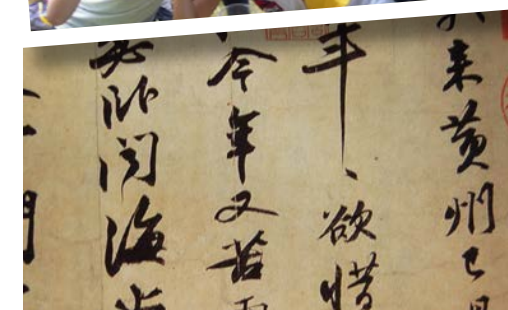 來黄州已
年、欲惜
今年又苦
卧聞海